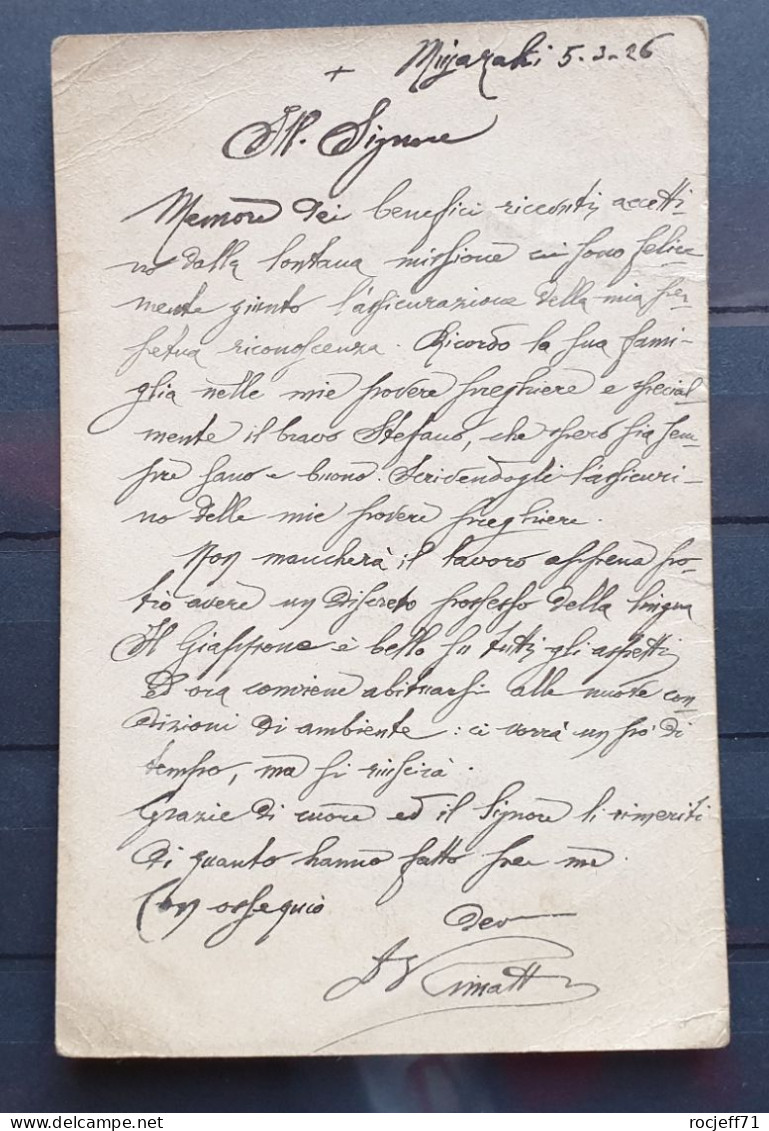 + Miyazaki 5-3-26
Ill. Signore
Memore dei benefici ricevuti, accetti-
no dalla lontana missione cui sono felice
mente giunto l'assicurazione della mia per-
petua riconoscenza. Ricordo la sua fami-
glia nelle mie povere preghiere e special
mente il bravo Stefano, che spero sia sem-
pre sano e buono. Scrivendogli l'assicuri-
no delle mie povere preghiere.
Non mancherà il lavoro appena po-
trò avere un discreto possesso della lingua
Il Giappone è bello su tutti gli aspetti
Ed ora conviene abituarsi alle nuove con-
dizioni di ambiente: ci vorrà un po' di
tempo, ma si riuscirà.
Grazie di cuore ed il Signore li rimeriti
di quanto hanno fatto per me.
Con ossequio
dev
Cimatti
delcampe.net
rocjeff71